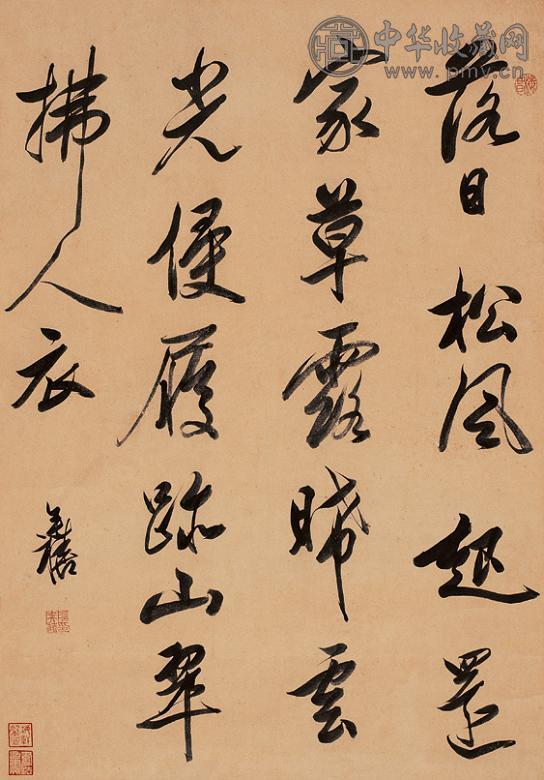 中华收藏网
www.pmv.cn
落日松風起還
家草露晞雲
光侵履跡山翠
拂人衣
奕禧